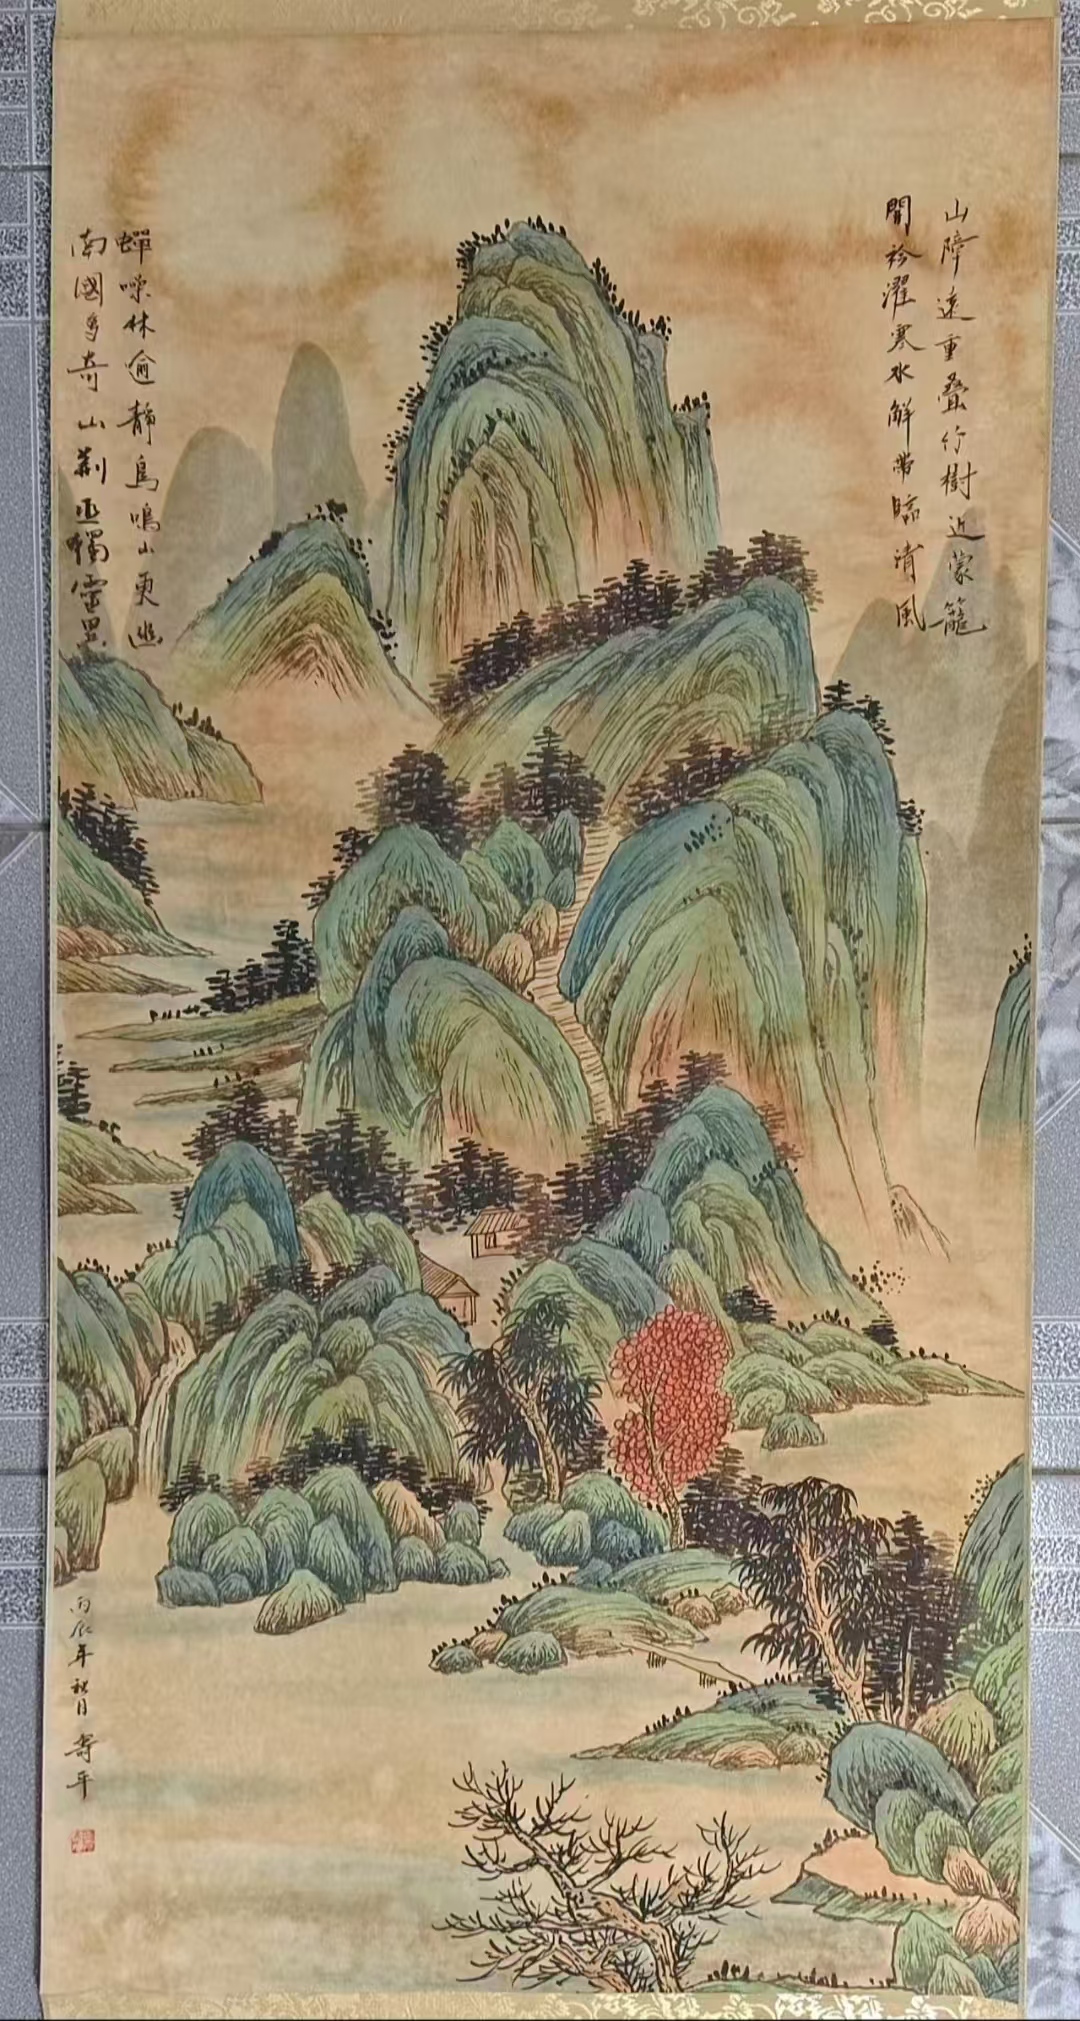 山障遠重疊竹樹近蒙籠
開衿濯寒水解帶臨清風
蟬噪林逾静鳥鳴山更幽
南國多奇山荆巫獨靈異
丙辰年秋月
壽平